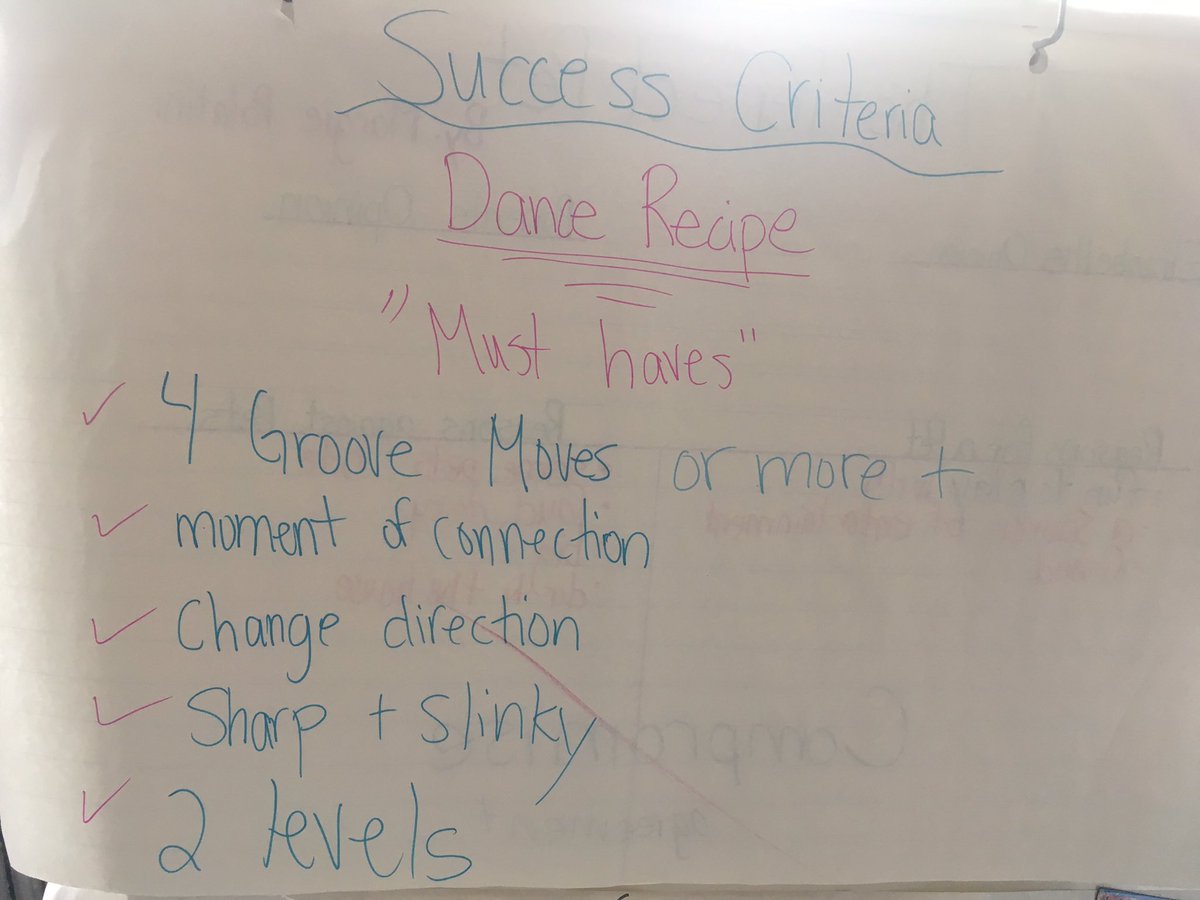 Success Criteria
Dance Recipe
"Must haves"
✓ 4 Groove Moves or more +
✓ moment of connection
✓ Change direction
✓ Sharp + Slinky
✓ 2 levels